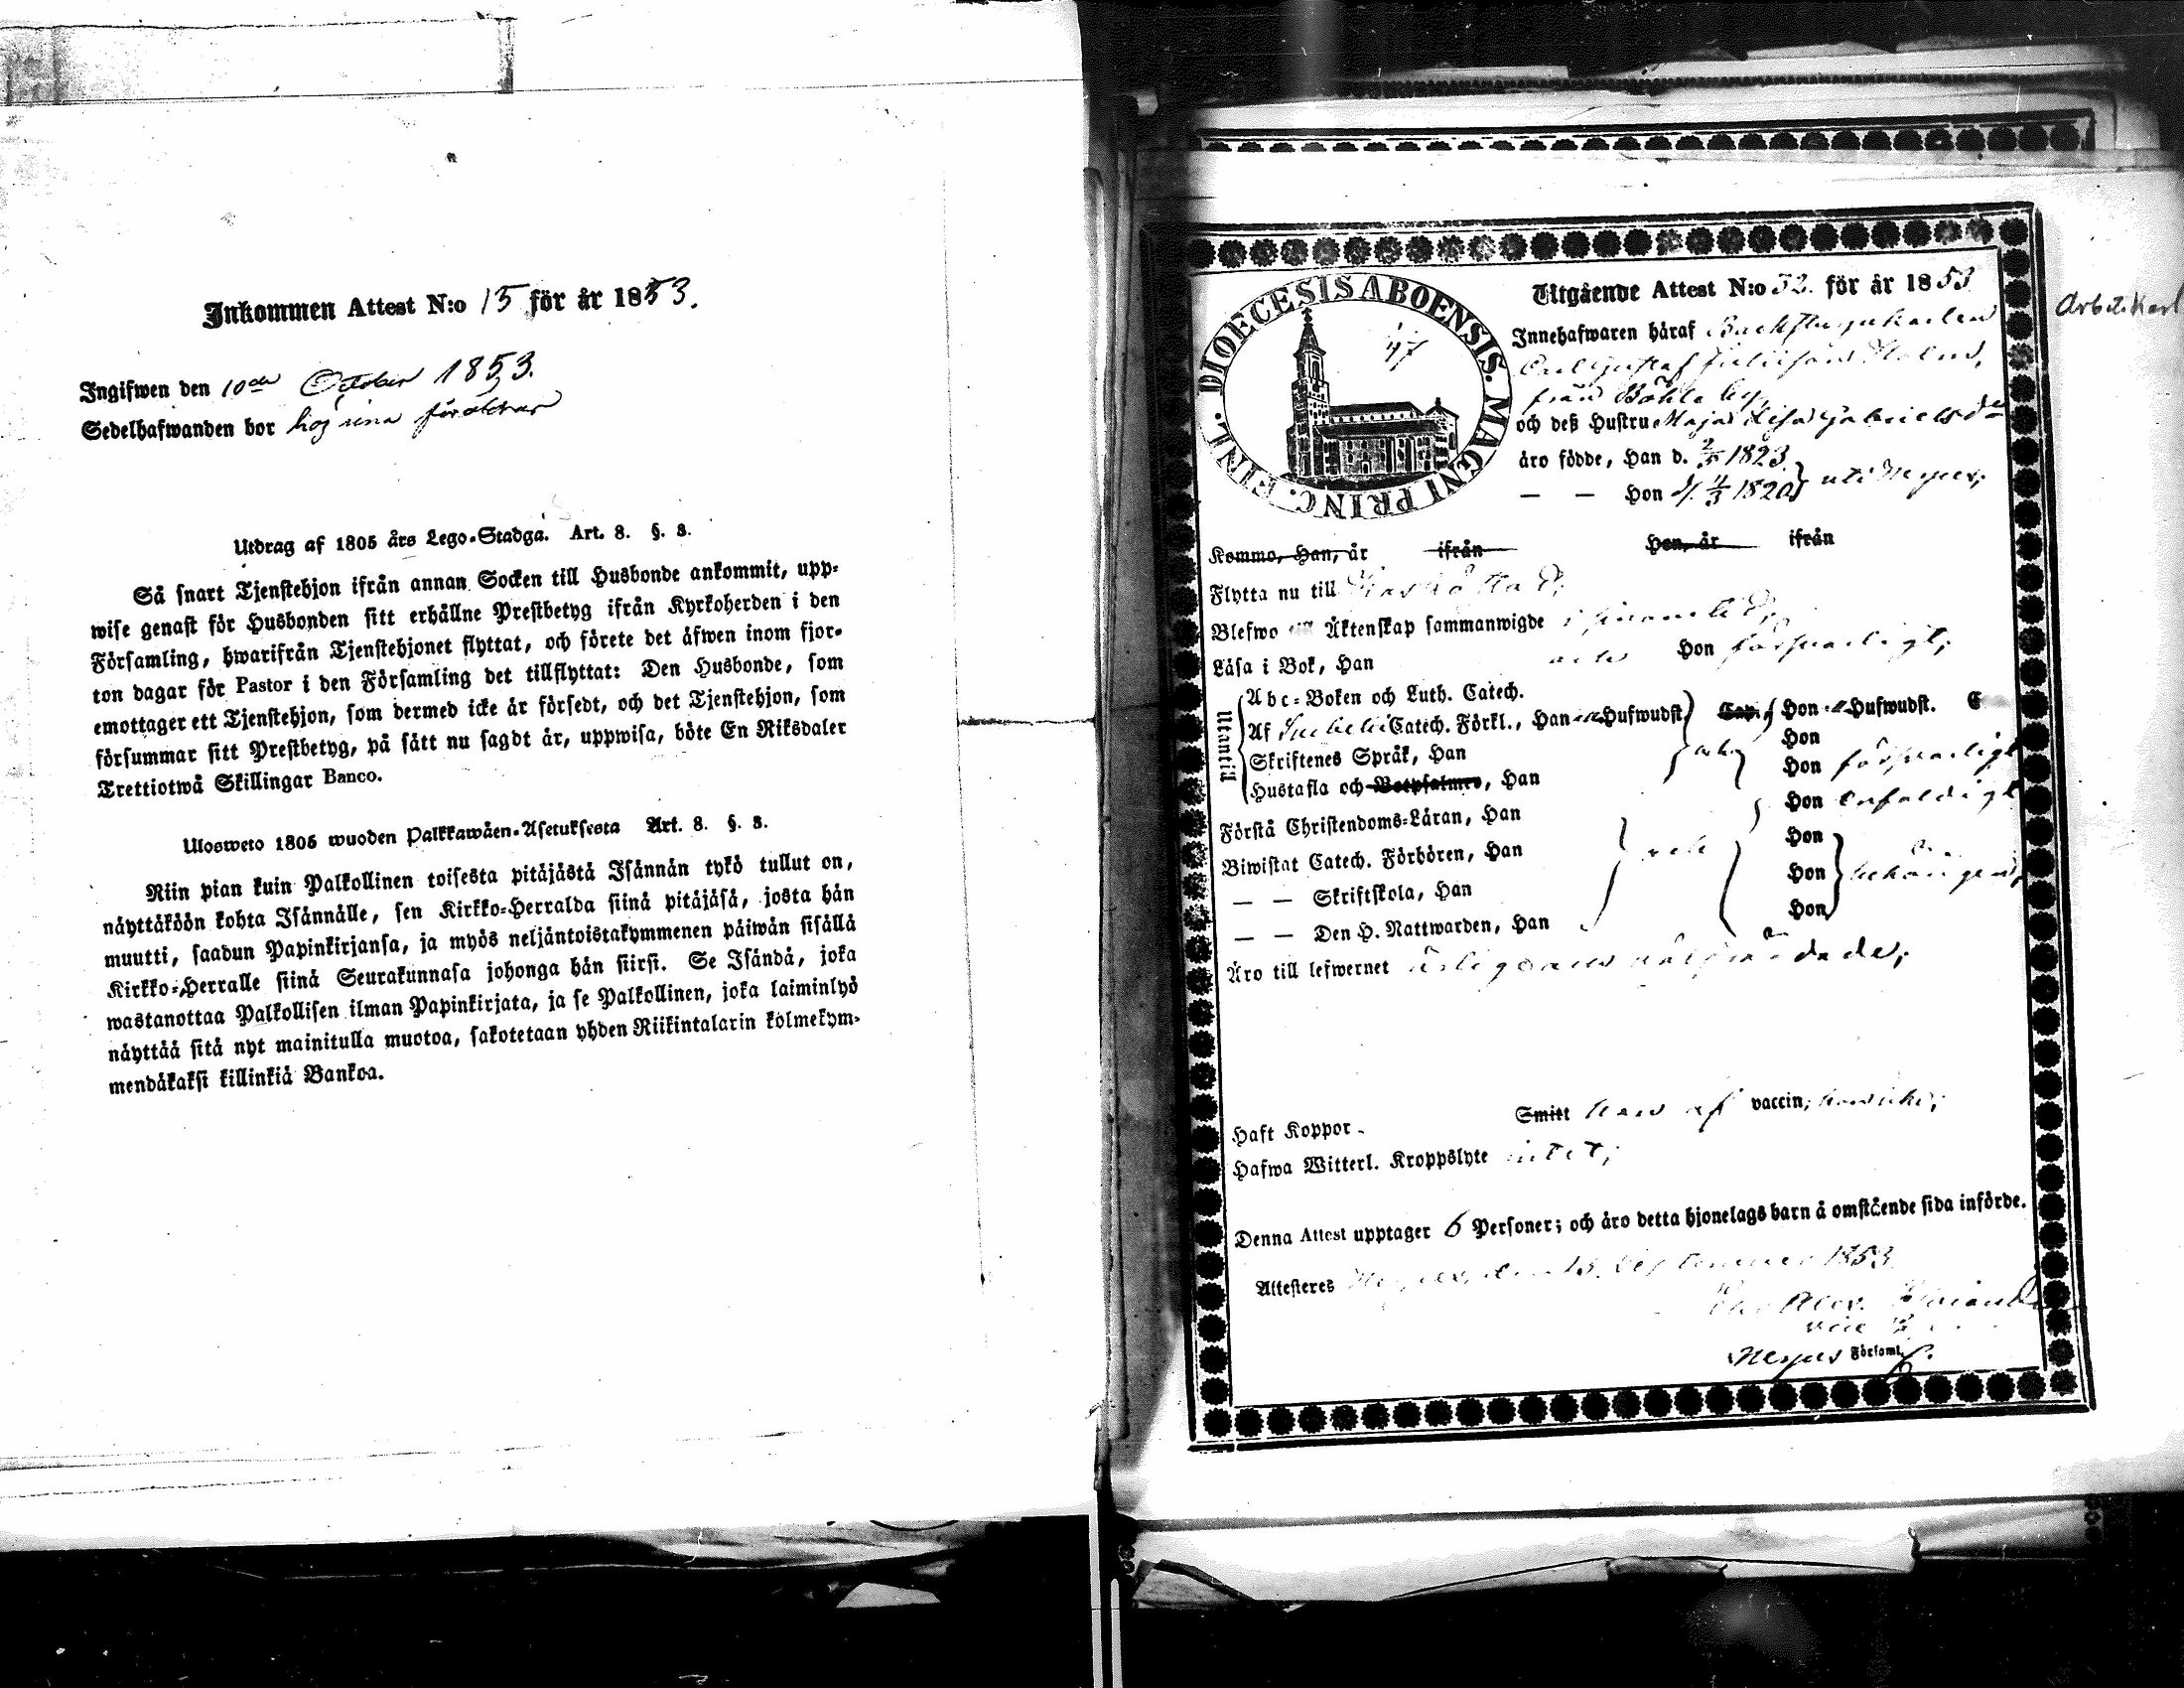 Inkommen Attest N:o 15 för år 1853.
Ingifwen den 10de October 1853.
Sedelhafwanden bor hos sina föräldrar
Utdrag af 1805 års Lego-Stadga. Art. 8. §. 3.
Så snart Tjenstehjon ifrån annan Socken till Husbonde ankommit, upp-
wise genast för Husbonden sitt erhållne Prestbetyg ifrån Kyrkoherden i den
Församling, hwarifrån Tjenstehjonet flyttat, och förete det äfwen inom fjor-
ton dagar för Pastor i den Församling det tillflyttat: Den Husbonde, som
emottager ett Tjenstehjon, som dermed icke är försedt, och det Tjenstehjon, som
försummar sitt Prestbetyg, på sätt nu sagdt är, uppwisa, böte En Riksdaler
Trettiotwå Skillingar Banco.
Ulosweto 1805 wuoden Palkkawäen-Asetuksesta Art. 8. §. 3.
Niin pian kuin Palkollinen toisesta pitäjästä Isännän tykö tullut on,
näyttäköön kohta Isännälle, sen Kirkko-Herralda siinä pitäjäsä, josta hän
muutti, saadun Papinkirjansa, ja myös neljäntoistakymmenen päiwän sisällä
Kirkko-Herralle siinä Seurakunnasa johonga hän siirsi. Se Isändä, joka
wastanottaa Palkollisen ilman Papinkirjata, ja se Palkollinen, joka laiminlyö
näyttää sitä nyt mainitulla muotoa, sakotetaan yhden Riikintalarin kolmekym-
mendäkaksi killinkiä Bankoa.
DIOECESIS ABOENSIS. MAGNI PRINC. FINL.
47
Utgående Attest N:o 52. för år 1853
Arbetskarl
Innehafwaren häraf Backstugukarlen
Carl Gustaf Holm,
från Böhle by,
och deß Hustru Maja Lisa Gabrielsdr
äro födde, Han d. 2/5 1823
— — Hon d. 4/3 1820 uti
Kommo, Han, år ifrån Hon, år ifrån
Flytta nu till
Blefwo till Äktenskap sammanwigde
Läsa i Bok, Han och Hon försvarligt;
Utantill
Abc-Boken och Luth. Catech.
Af Catech. Förkl., Han Hufwudst. Cap. Hon Hufwudst.
Skriftenes Språk, Han Hon
Hustafla och Botpsalmer, Han och Hon försvarligt
Förstå Christendoms-Läran, Han Hon enfaldigt
Biwistat Catech. Förhören, Han och Hon
— — Skriftskola, Han Hon behörigen,
— — Den H. Nattwarden, Han Hon
Äro till lefwernet ärliga och välfrejdade;
Haft Koppor - Smitt han af vaccin, hon icke;
Hafwa Witterl. Kroppslyte intet;
Denna Attest upptager 6 Personer; och äro detta hjonelags barn å omstående sida införde.
Attesteres den 15. September 1853
Alex.
vice
Församl.